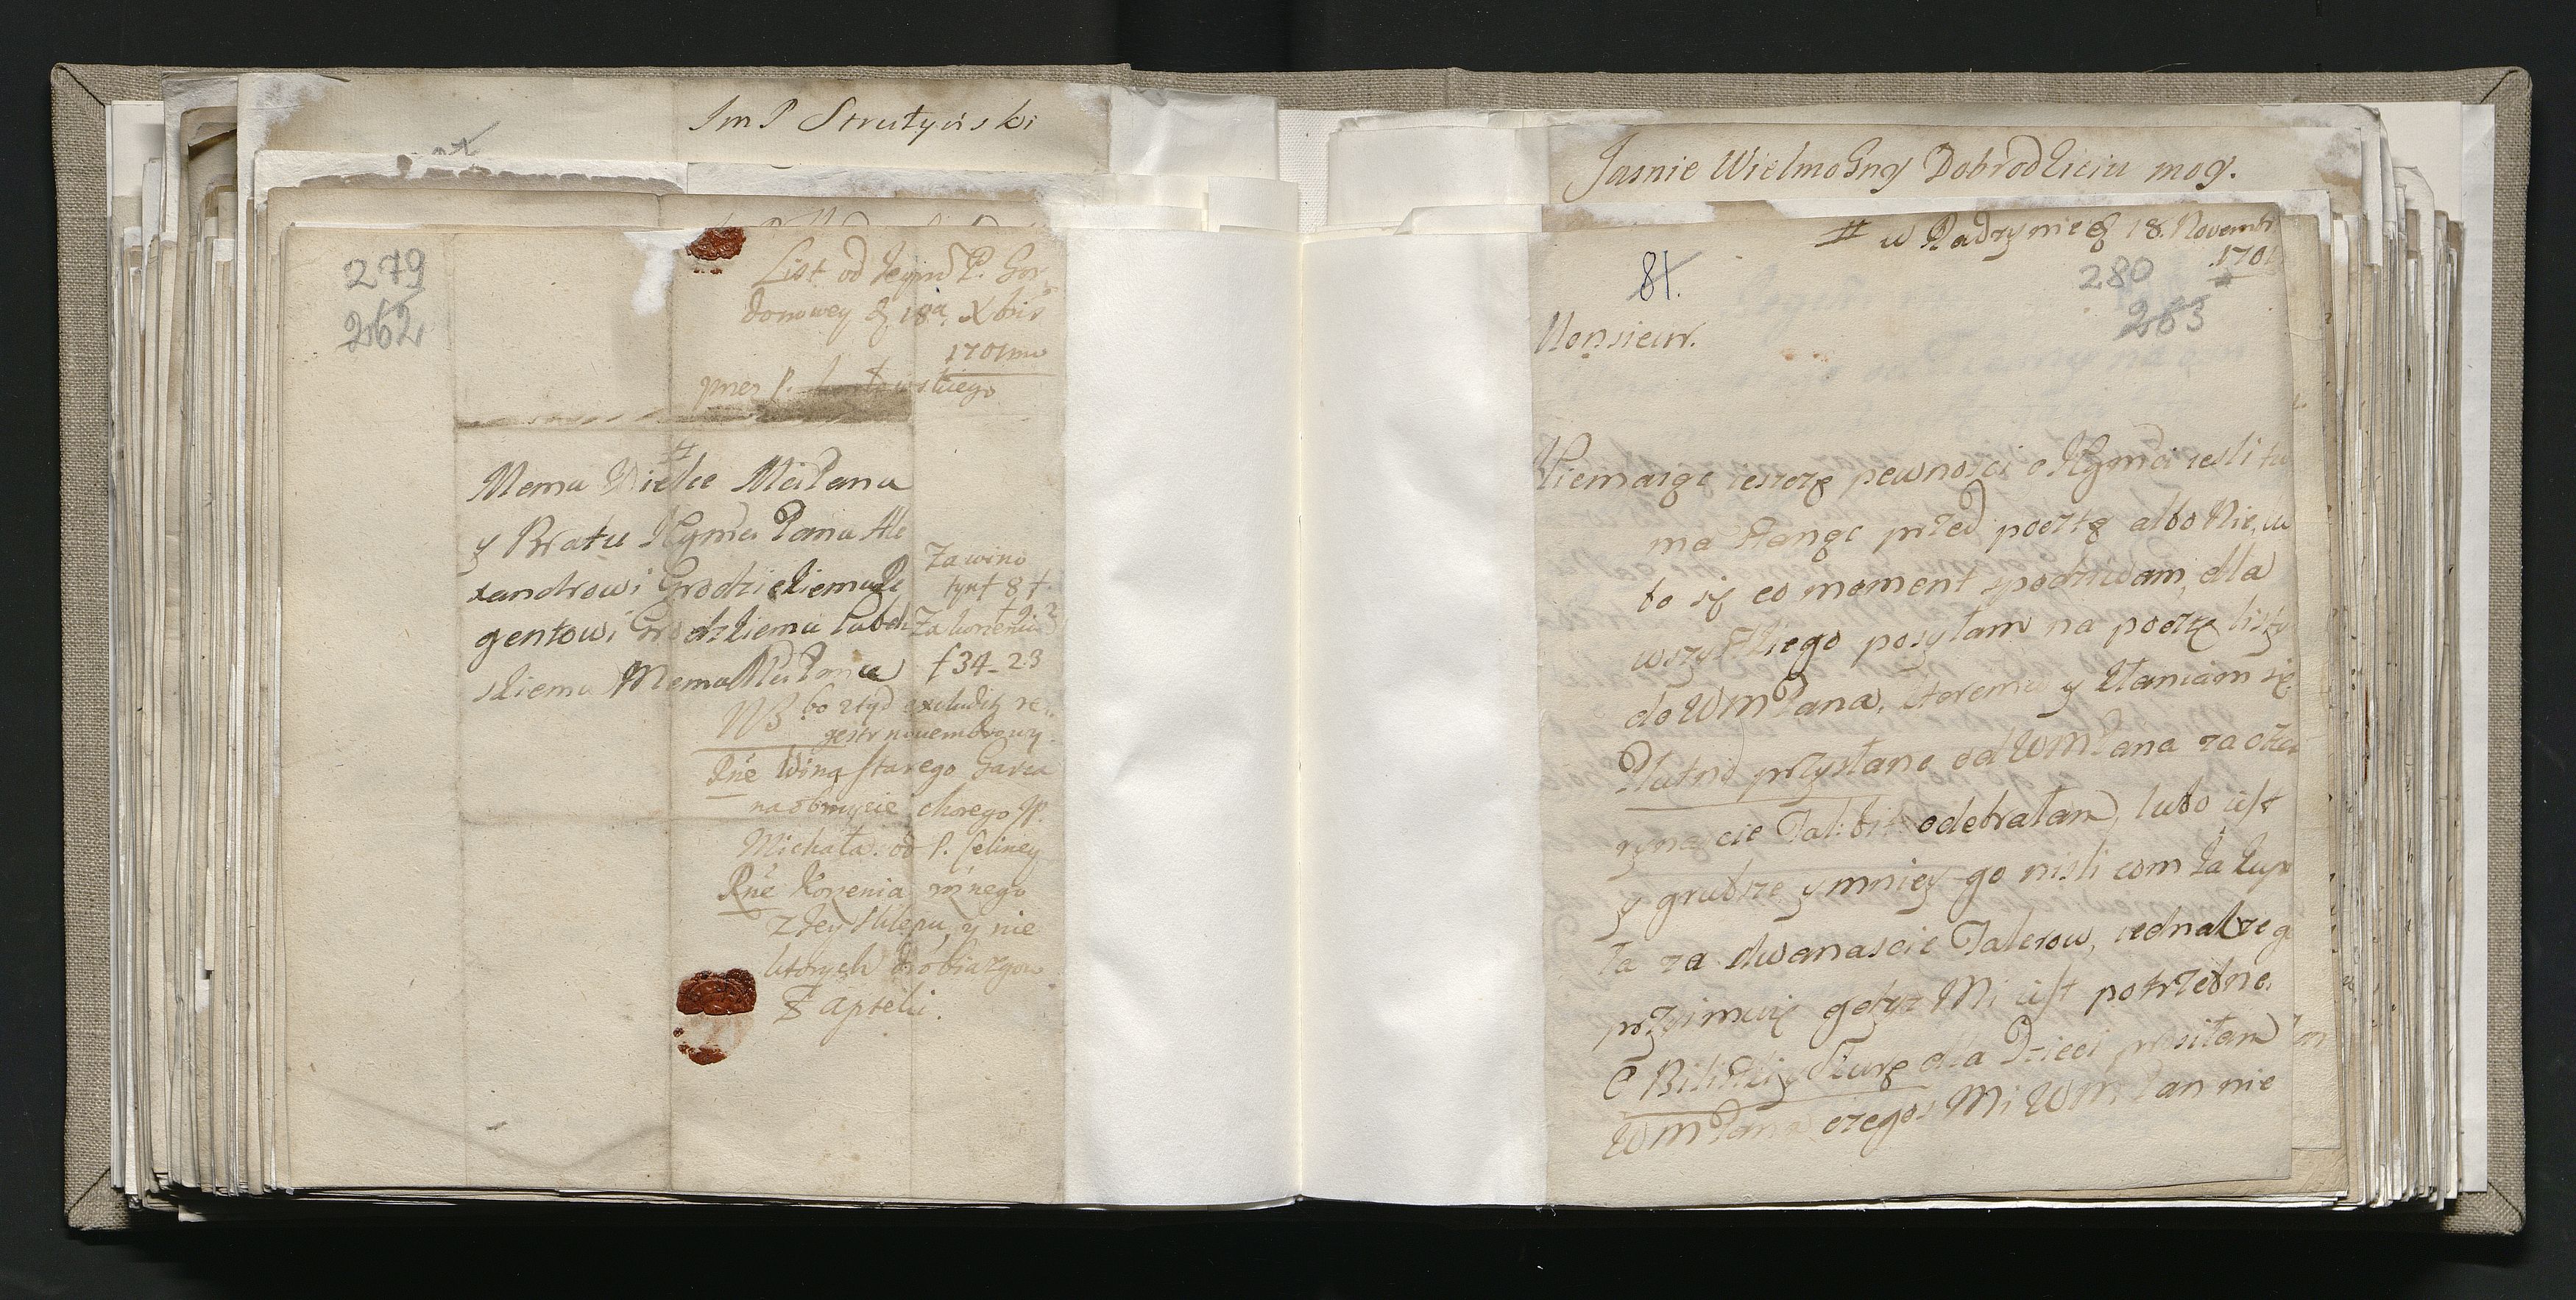 Im P Strutyński
279
262
List od Jeymć P. Gor
donowey d 18a Xbris
1701mo
przez P.
Memu Wielce MciPanu
y Bratu Jgmći Panu Ale
xandrowi Grodzickiemu Re
gentowi Grodzkiemu Lubel
skiemu MemuMciPanu
Za wino
tynf 8 f.
Za korzenie
f 34-23
NB bo ztąd excludit re
gestr nouembrowy.
Rne Wina starego Garca
na obmycie chorego JP.
Michała. od P.
Rne Korzenia roznego
z tey Sklepu, y nie
ktorych drobiazgow
Z apteki.
Jasnie Wielmożny Dobrodzieiu mog.
# w Radzyniu d 18. Novembr
1701
81.
280
263
Monsieur.
Niemaiąc ieszcze pewnosci o Jgmći iesli tu
ma stanąc przed pocztą albo Nie, lu
bo się co moment spodziwam, dla
wszystkiego posyłam na pocztę listy
do WMPana, ktoremu y kłaniam się
Płutno przysłane od WMPana za
rynascie Tal: bit: odebrałam, lubo iest
y grubsze y mniey go nisli com ia kupi
ła za dwanascie Talerow, iednakze g
przyimuię gdyz Mi iest potrzebne.
O dla Dzieci prosiłam
WMPana czegos Mi WMPan nie